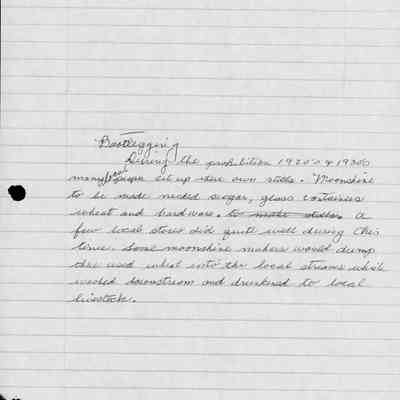 Bootlegging
During the prohibition 1920's & 1930s
many local people set up there own stills. Moonshine
to be made needed sugar, glass containers
wheat and hardware. to make stills. A
few local stores did quite well during this
time. Some moonshine makers would dump
the used wheat into the local streams which
washed downstream and drunkened to local
livestock.